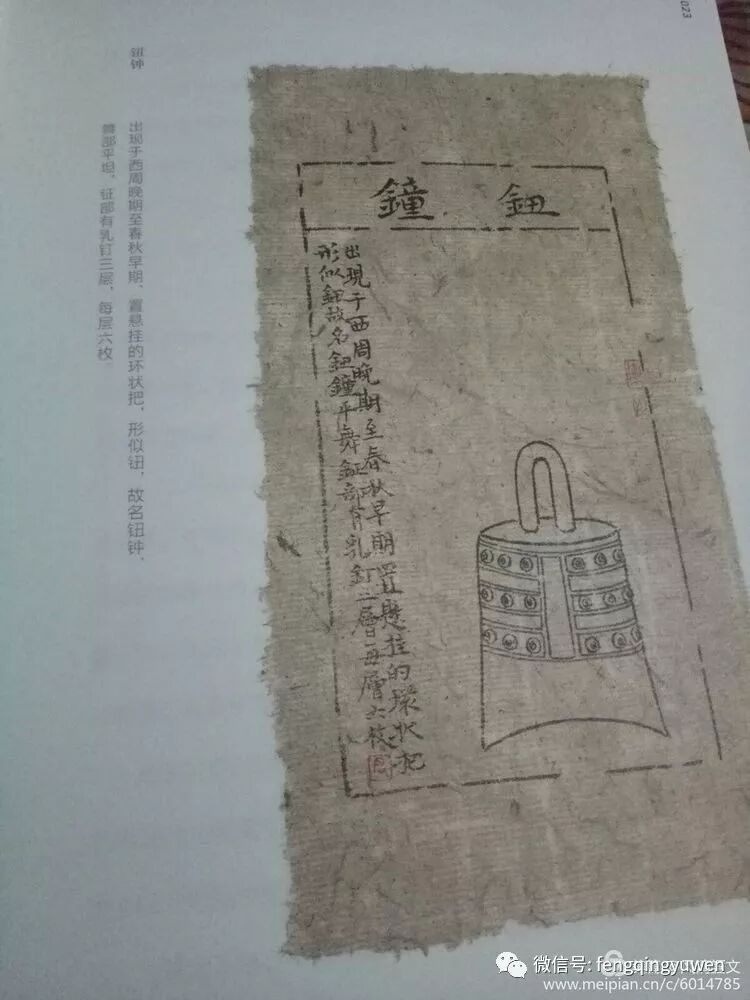 023
鈕鐘
出現于西周晚期至春秋早期置懸挂的環状把
形似鈕故名鈕鐘平舞鉦部有乳釘三層每層六枚
钮钟
出现于西周晚期至春秋早期，置悬挂的环状把，形似钮，故名钮钟，
舞部平坦，钲部有乳钉三层，每层六枚
微信号: fengqingyuwen
www.meipian.cn/c/6014785